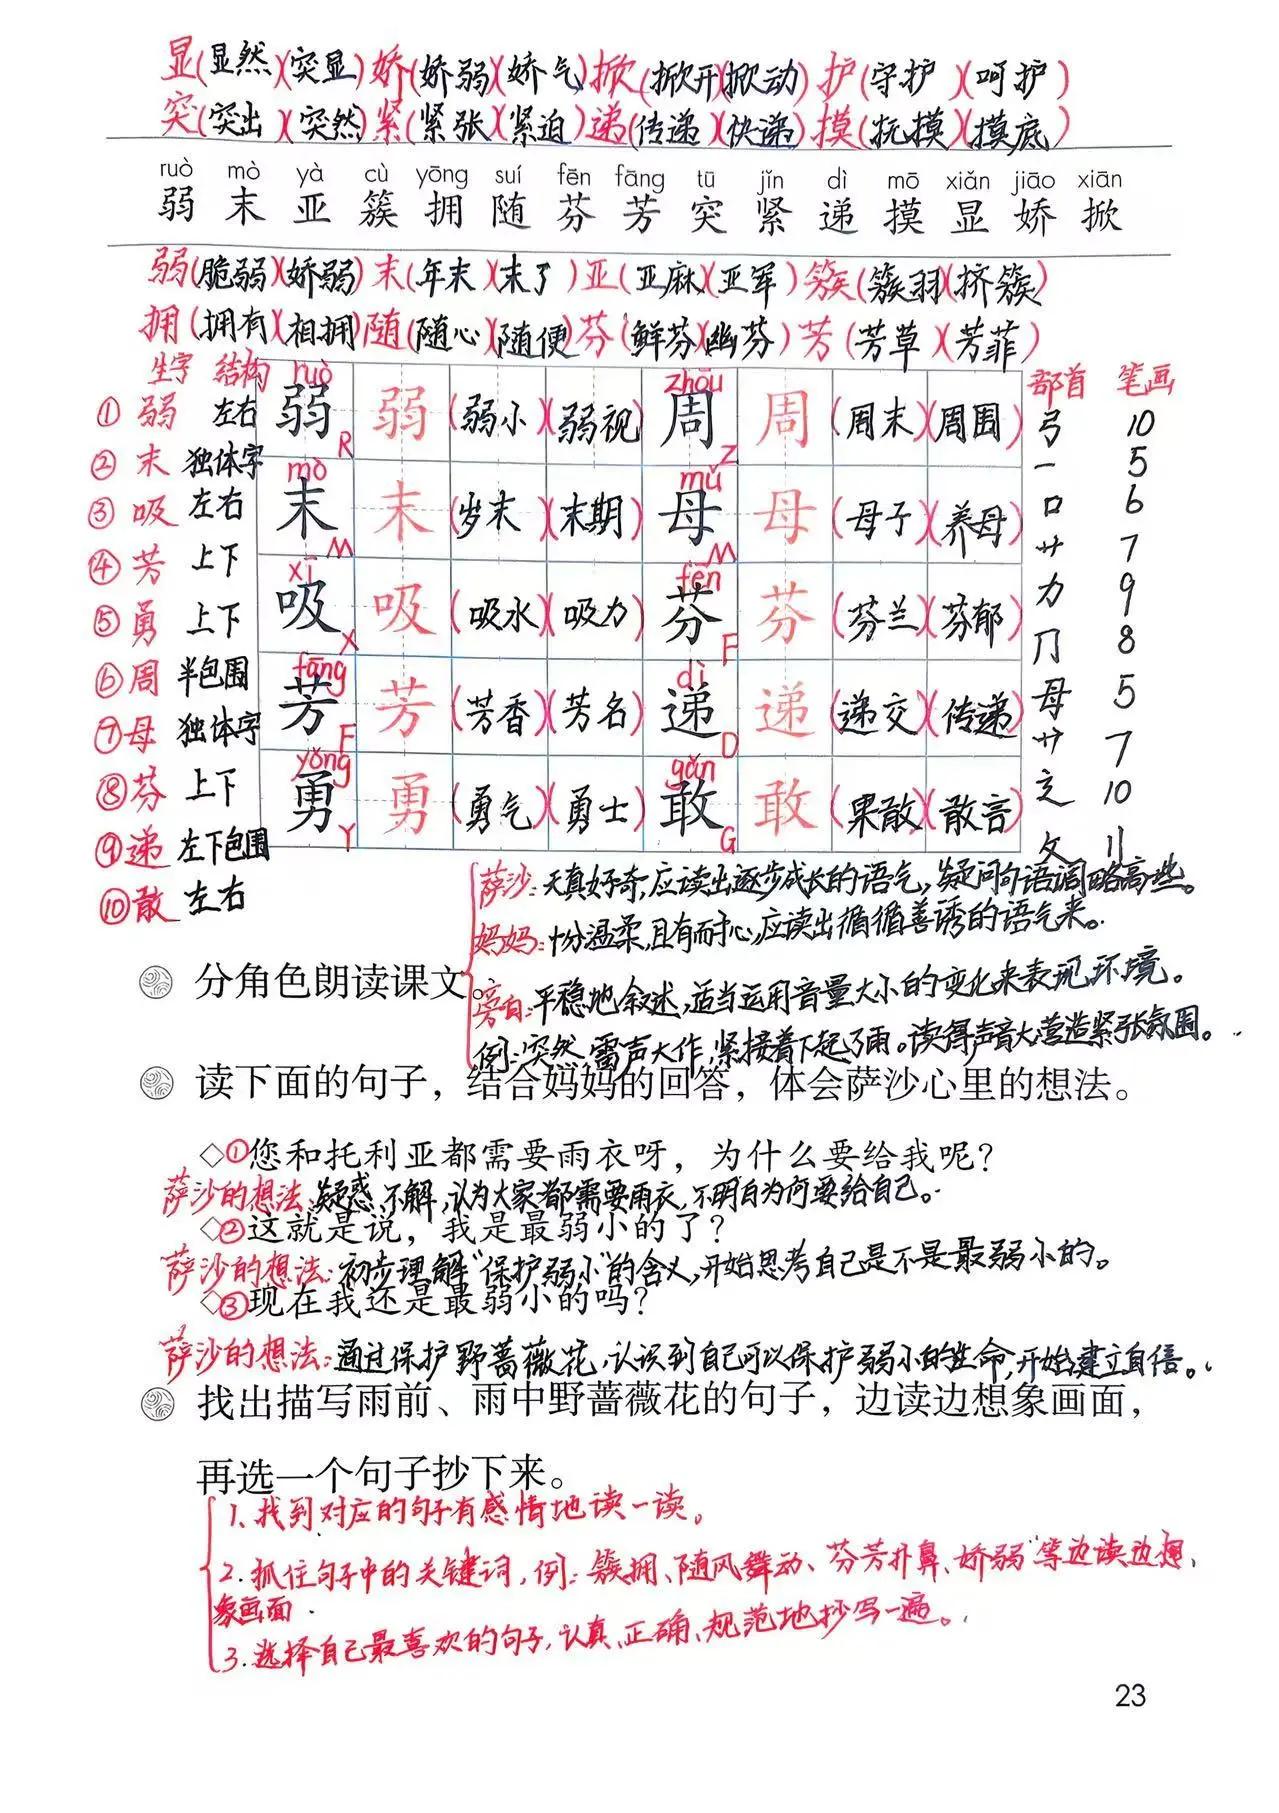 显(显然)(突显)娇(娇弱)(娇气)掀(掀开)(掀动)护(守护)(呵护)
突(突出)(突然)紧(紧张)(紧迫)递(传递)(快递)摸(抚摸)(摸底)
ruò mò yà cù yōng suí fēn fāng tū jǐn dì mō xiǎn jiāo xiān
弱 末 亚 簇 拥 随 芬 芳 突 紧 递 摸 显 娇 掀
弱(脆弱)(娇弱)末(年末)(末了)亚(亚麻)(亚军)簇(簇羽)(挤簇)
拥(拥有)(相拥)随(随心)(随便)芬(鲜芬)(幽芬)芳(芳草)(芳菲)
生字 结构 ruò zhōu 部首 笔画
①弱 左右 弱 R 弱 (弱小)(弱视) 周 Z 周 (周末)(周围) 弓 10
②末 独体字 mò mǔ 一 5
③吸 左右 末 M 末 (岁末)(末期) 母 M 母 (母子)(养母) 口 6
④芳 上下 xī fēn 艹 7
⑤勇 上下 吸 X 吸 (吸水)(吸力) 芬 F 芬 (芬兰)(芬郁) 力 9
⑥周 半包围 fāng dì 冂 8
⑦母 独体字 芳 F 芳 (芳香)(芳名) 递 D 递 (递交)(传递) 母 5
⑧芬 上下 yǒng gǎn 艹 7
⑨递 左下包围 勇 Y 勇 (勇气)(勇士) 敢 G 敢 (果敢)(敢言) 辶 10
⑩敢 左右 攵 11
萨沙:天真好奇,应读出逐步成长的语气,疑问句语调略高些。
妈妈:十分温柔,且有耐心,应读出循循善诱的语气来。
分角色朗读课文。
旁白:平稳地叙述,适当运用音量大小的变化来表现环境。
例:突然,雷声大作,紧接着下起了雨。读得声音大,营造紧张氛围。
读下面的句子，结合妈妈的回答，体会萨沙心里的想法。
◇①您和托利亚都需要雨衣呀，为什么要给我呢？
萨沙的想法:疑惑、不解,认为大家都需要雨衣,不明白为何要给自己。
◇②这就是说，我是最弱小的了？
萨沙的想法:初步理解“保护弱小”的含义,开始思考自己是不是最弱小的。
◇③现在我还是最弱小的吗？
萨沙的想法:通过保护野蔷薇花,认识到自己可以保护弱小的生命,开始建立自信。
找出描写雨前、雨中野蔷薇花的句子，边读边想象画面，
再选一个句子抄下来。
1.找到对应的句子有感情地读一读。
2.抓住句子中的关键词,例:簇拥、随风舞动、芬芳扑鼻、娇弱等边读边想
象画面.
3.选择自己最喜欢的句子,认真、正确、规范地抄写一遍。
23